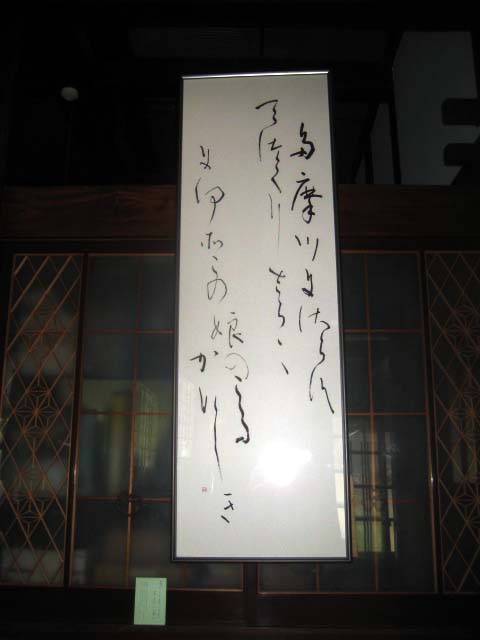 多摩川にさらす
てつくりさらさら
に何そこの娘のここた
かなしき